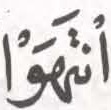 أنتَهَوْا